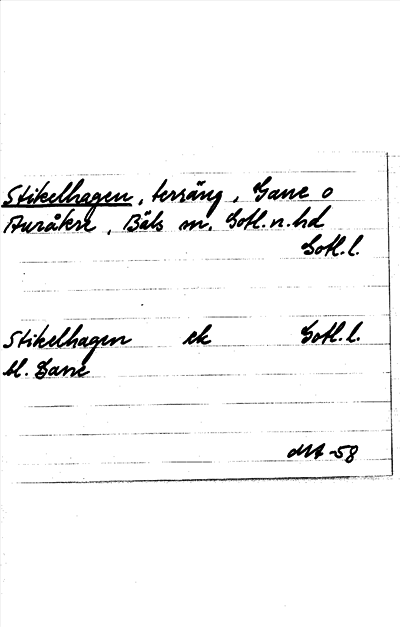 Stikelhagen, terräng, Gane o
Auråkre, Bäls sn, Gotl. n. hd
Gotl. l.
Stikelhagen ek Gotl. l.
bl. Gane
58